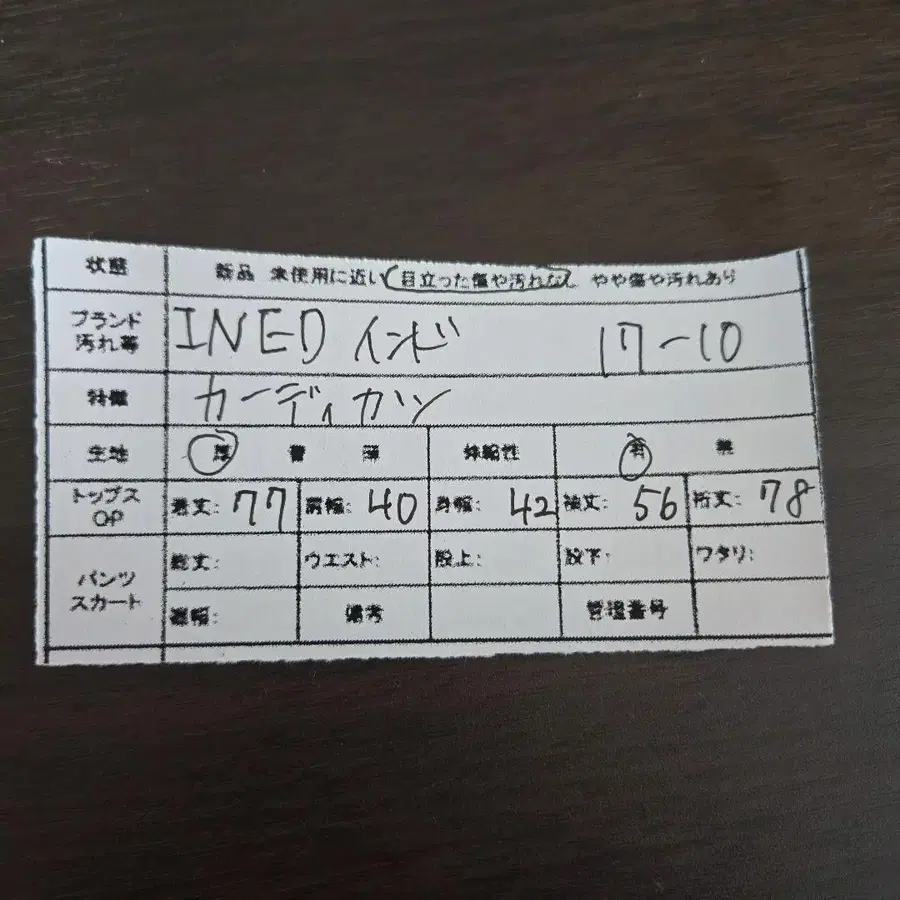 状態 新品 未使用に近い 目立った傷や汚れなし やや傷や汚れあり
ブランド 汚れ等 INED インド 17-10
特徴 カーディガン
生地 厚 普 薄 伸縮性 有 無
トップス OP 着丈: 77 肩幅: 40 身幅: 42 袖丈: 56 裄丈: 78
パンツ スカート 総丈: ウエスト: 股上: 股下: ワタリ:
裾幅: 備考 管理番号